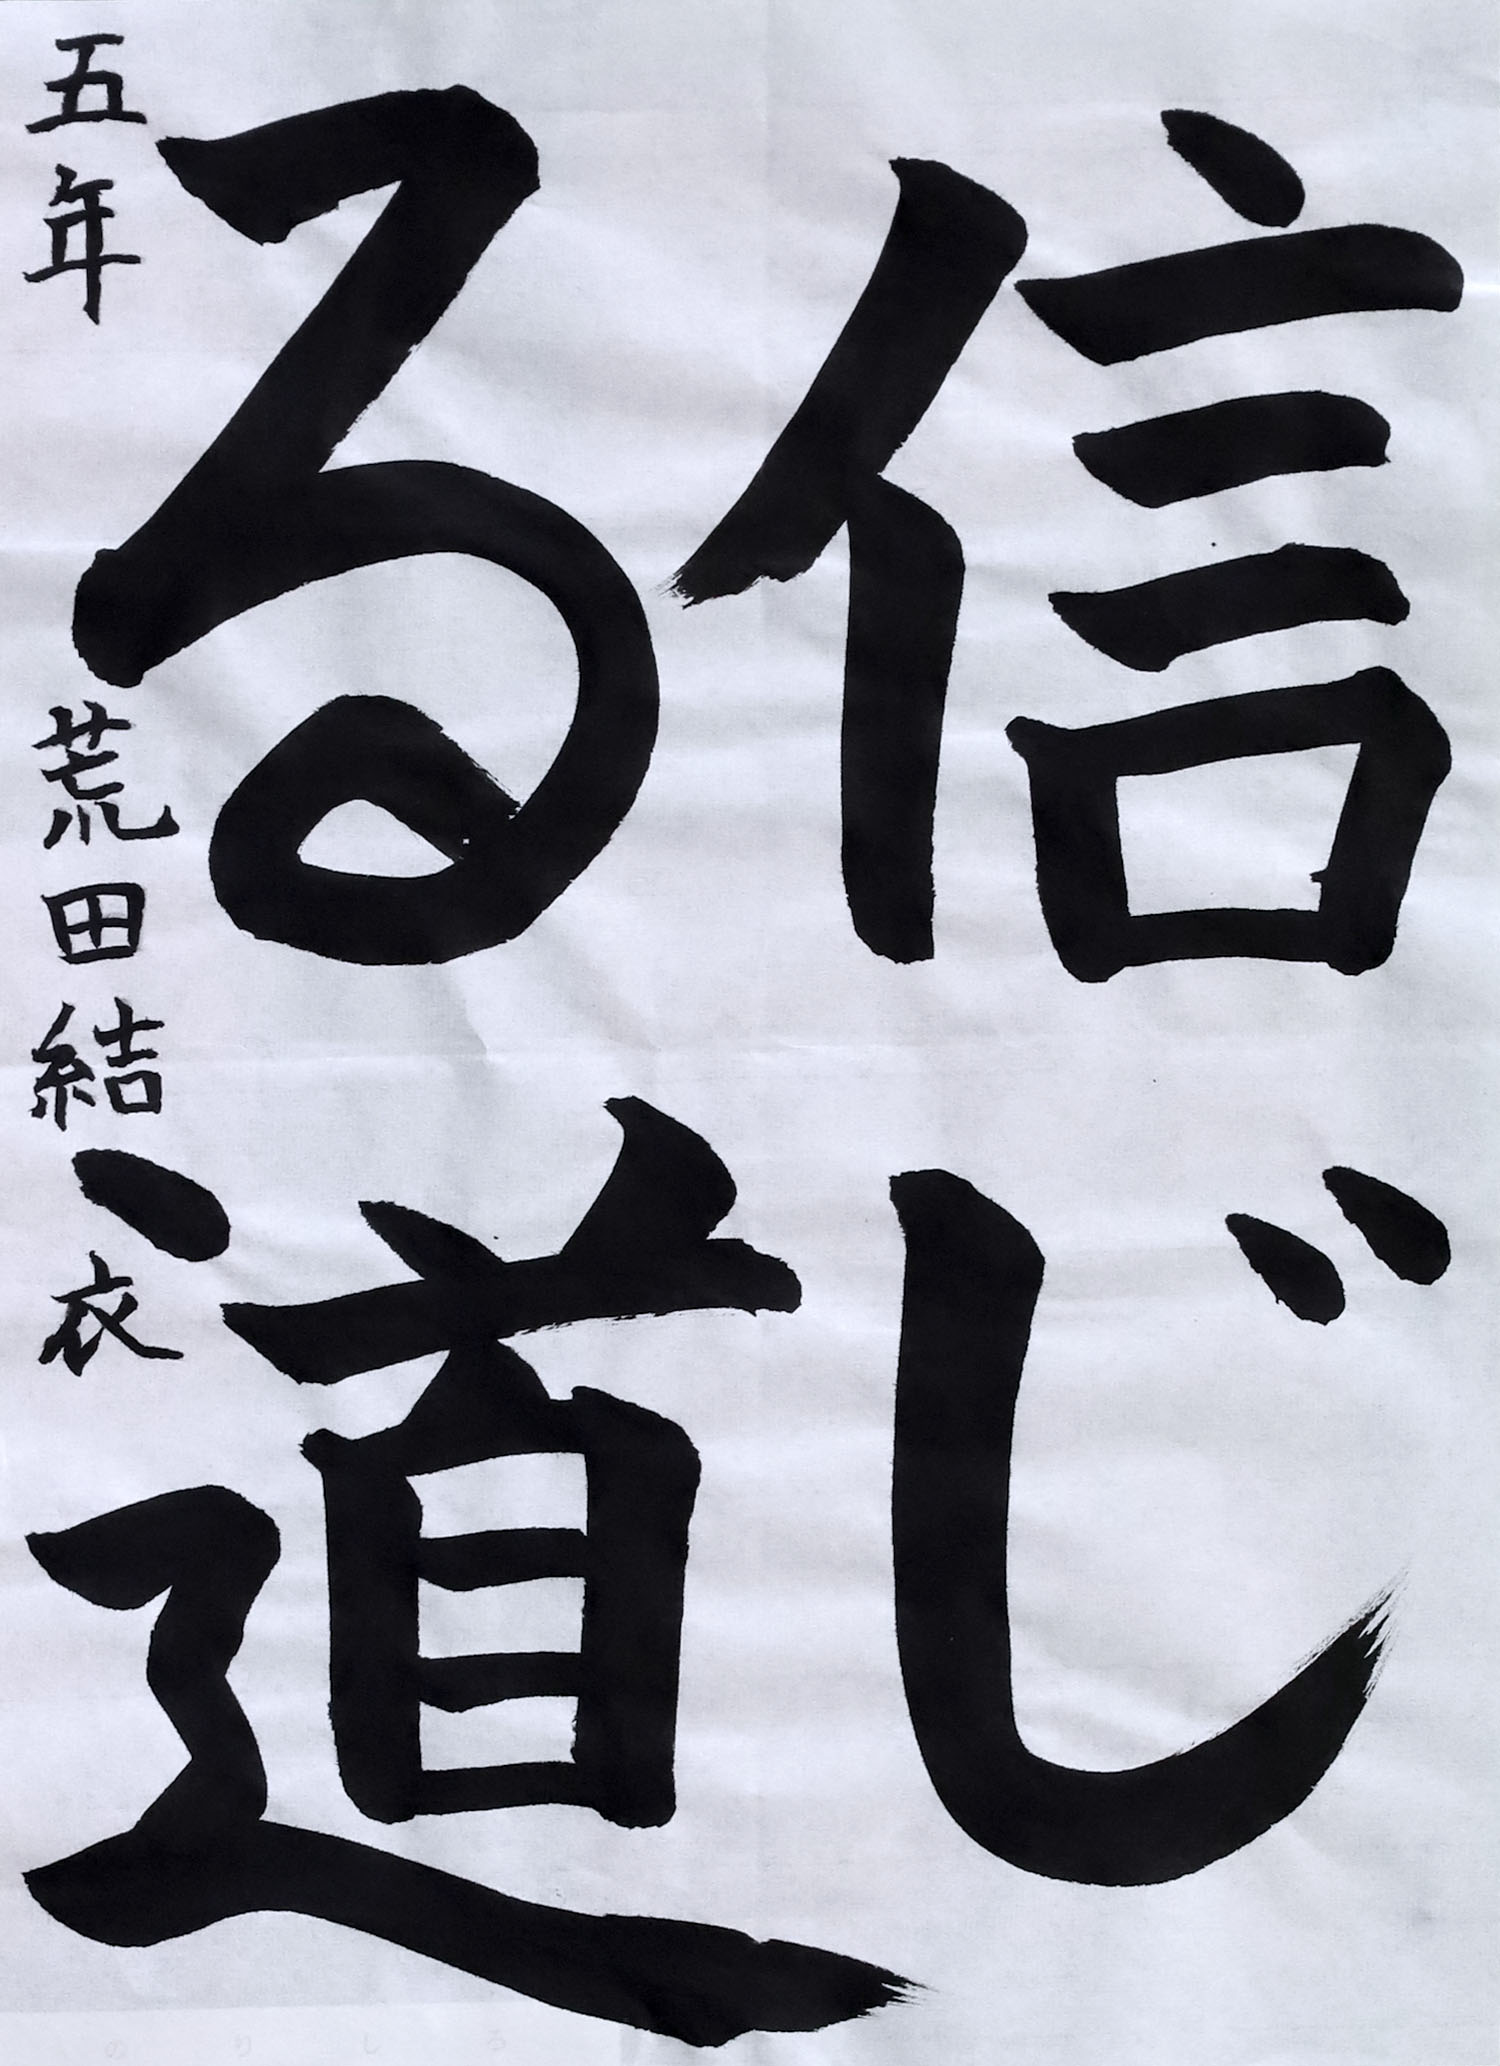 信じ
る道
五年 荒田結衣